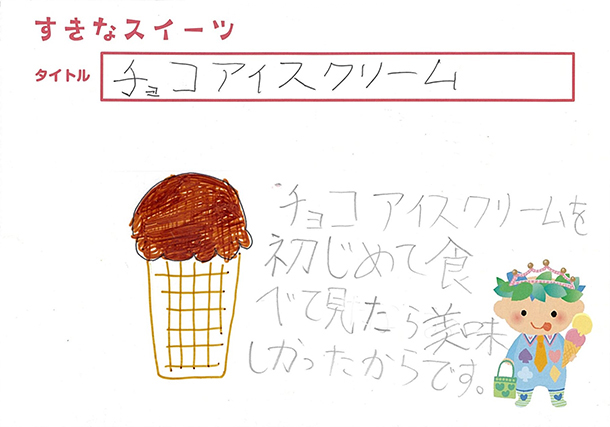 すきなスイーツ
タイトル チョコアイスクリーム
チョコアイスクリームを
初じめて食
べて見たら美味
しかったからです。